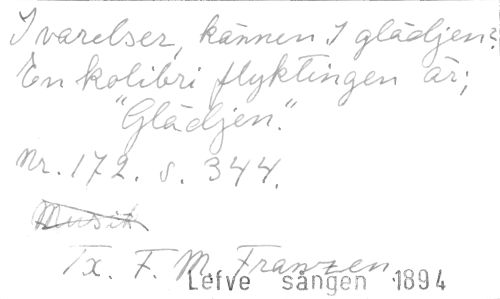 I varelser, kännen I glädjen?
En kolibri flyktingen är;
"Glädjen."
Nr. 172. s. 344.
Musik
Tx. F. M. Franzen.
Lefve sången 1894